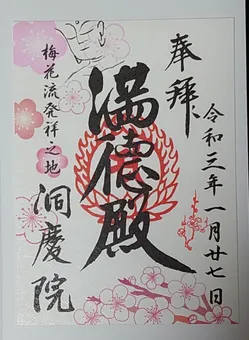 奉拝
令和三年一月廿七日
満德殿
梅花流発祥之地
洞慶院